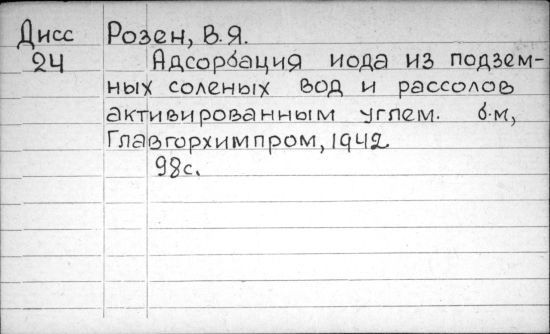 Дисс Розен, В.Я.
24 Адсорбация иода из подзем-
ных соленых вод и рассолов
активированным углем. б.м,
Главгорхимпром, 1942
98с.